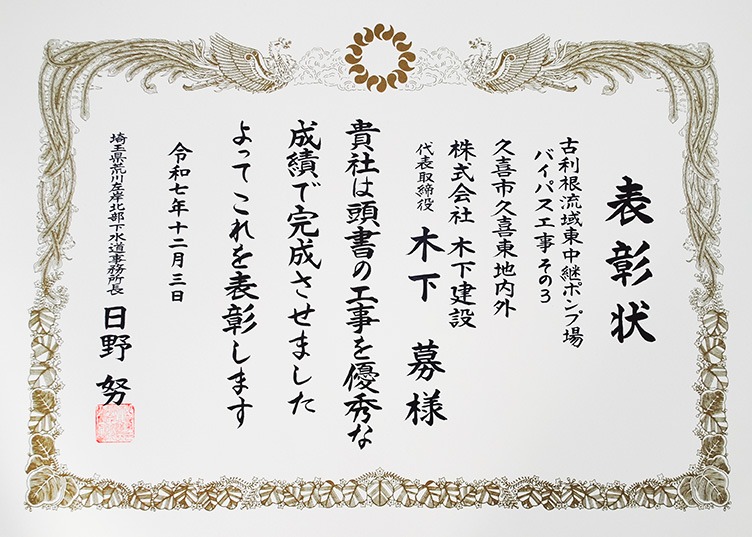 表彰状
古利根流域東中継ポンプ場
バイパス工事 その3
久喜市久喜東地内外
株式会社 木下建設
代表取締役 木下 募 様
貴社は頭書の工事を優秀な
成績で完成させました
よってこれを表彰します
令和七年十二月三日
埼玉県荒川左岸北部下水道事務所長 日野 努